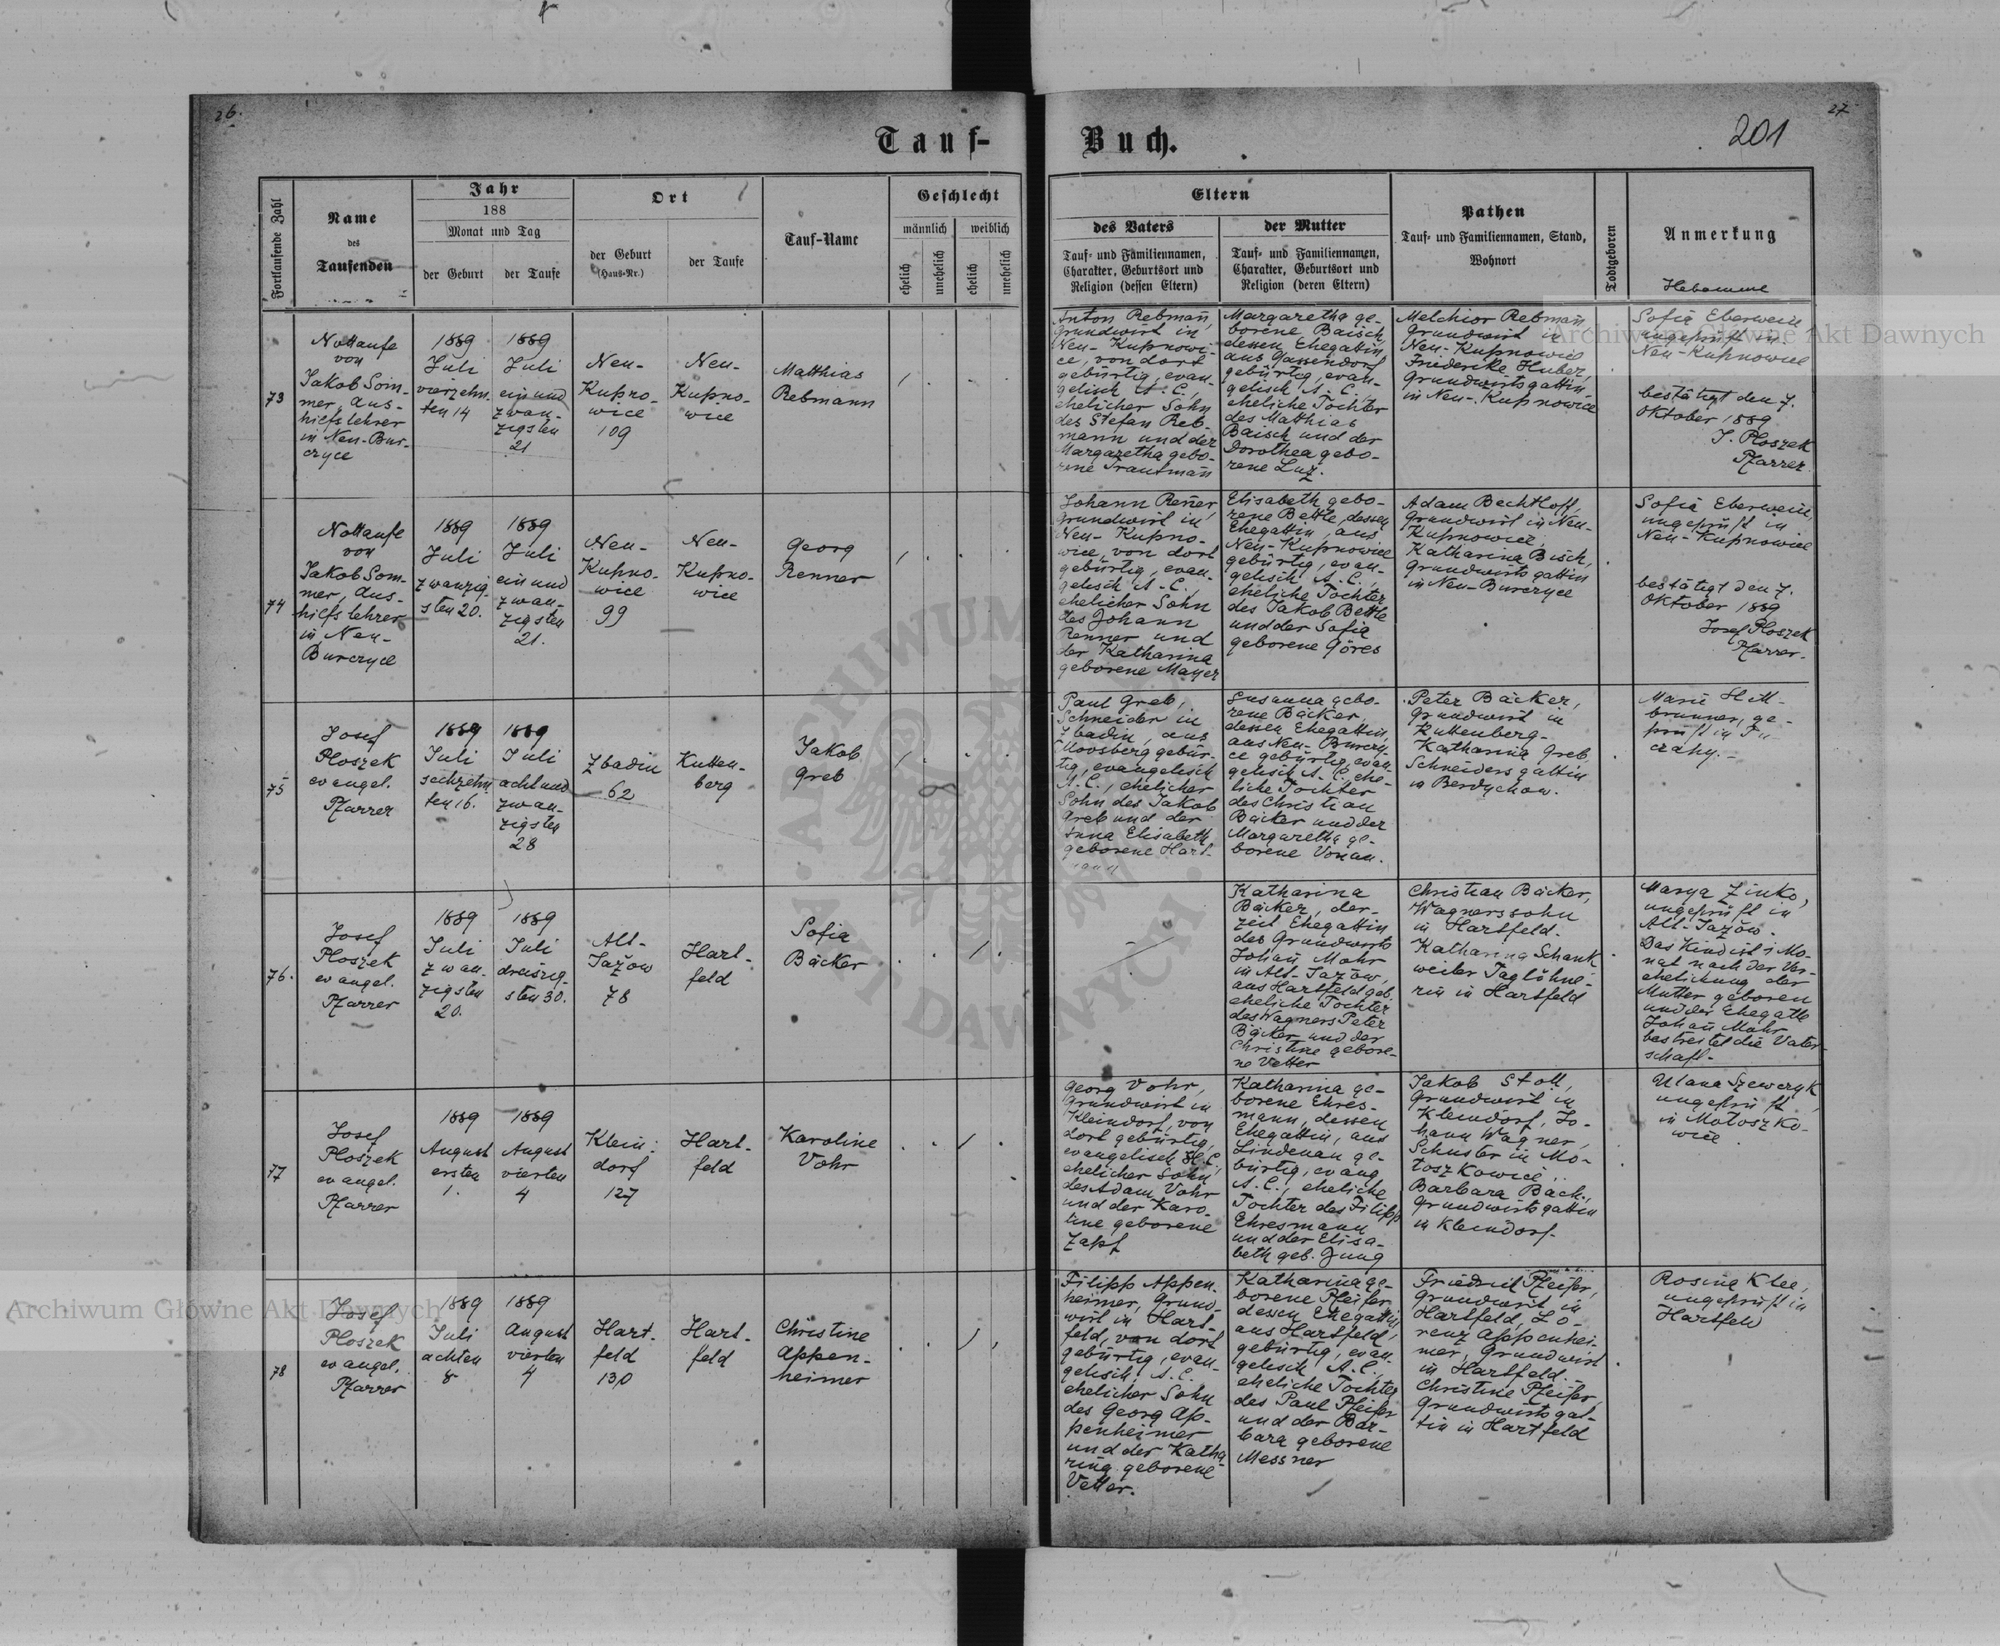 26.
27
201
Tauf-Buch.
Fortlaufende Zahl
Name
des
Taufenden
Jahr
188
Monat und Tag
der Geburt
der Taufe
Ort
der Geburt
(Haus-Nr.)
der Taufe
Tauf-Name
Geschlecht
männlich
weiblich
ehelich
unehelich
ehelich
unehelich
Eltern
des Vaters
Tauf- und Familiennamen,
Charakter, Geburtsort und
Religion (dessen Eltern)
der Mutter
Tauf- und Familiennamen,
Charakter, Geburtsort und
Religion (deren Eltern)
Pathen
Tauf- und Familiennamen, Stand,
Wohnort
Todtgeboren
Anmerkung
Hebamme
73
Nottaufe
von
Jakob Som-
mer, Aus-
hilfslehrer
in Neu-Bur-
czyce
1889
Juli
vierzehn-
ten 14
1889
Juli
ein und
zwan-
zigsten
21
Neu-
Kupno-
wice
109
Neu-
Kupno-
wice
Matthias
Rebmann
Anton Rebmañ,
Grundwirt in
Neu-Kupnowi-
ce, von dort
gebürtig, evan-
gelisch A. C.,
ehelicher Sohn
des Stefan Reb-
mann und der
Margaretha gebo-
rene Trautmañ
Margaretha ge-
borene Baisch,
dessen Ehegattin,
aus Gassendorf
gebürtig, evan-
gelisch A. C.,
eheliche Tochter
des Matthias
Baisch und der
Dorothea gebo-
rene Luz.
Melchior Rebmañ
Grundwirt in
Neu-Kupnowice
Friederike Huber,
Grundwirtsgattin
in Neu-Kupnowice
Sofia Eberwein
ungeprüft in
Neu-Kupnowice
bestätigt den 7.
Oktober 1889
J. Ploszek
Pfarrer.
74
Nottaufe
von
Jakob Som-
mer, Aus-
hilfslehrer
in Neu-
Burczyce
1889
Juli
zwanzig-
sten 20.
1889
Juli
ein und
zwan-
zigsten
21.
Neu-
Kupno-
wice
99
Neu-
Kupno-
wice
Georg
Renner
Johann Reñer,
Grundwirt in
Neu-Kupno-
wice, von dort
gebürtig, evan-
gelisch A. C.,
ehelicher Sohn
des Johann
Renner und
der Katharina
geborene Mayer
Elisabeth gebo-
rene Bettle, dessen
Ehegattin, aus
Neu-Kupnowice
gebürtig, evan-
gelisch A. C.,
eheliche Tochter
des Jakob Bettle
und der Sofia
geborene Göres
Adam Bechtloff,
Grundwirt in Neu-
Kupnowice,
Katharina Bisch,
Grundwirtsgattin
in Neu-Burczyce
Sofia Eberwein,
ungeprüft in
Neu-Kupnowice
bestätigt den 7.
Oktober 1889
Josef Ploszek
Pfarrer.
75
Josef
Ploszek
evangel.
Pfarrer
1889
Juli
sechzehn-
ten 16.
1889
Juli
acht und
zwan-
zigsten
28
Zbadin
62
Kutten-
berg
Jakob
Greb
Paul Greb,
Schneider in
Zbadin, aus
Moosberg gebür-
tig, evangelisch
A. C., ehelicher
Sohn des Jakob
Greb und der
Anna Elisabeth
geborene Hart-
mann
Susanna gebo-
rene Bäcker,
dessen Ehegattin,
aus Neu-Burczy-
ce gebürtig, evan-
gelisch A. C., ehe-
liche Tochter
des Christian
Bäcker und der
Margaretha ge-
borene Vonau.
Peter Bäcker,
Grundwirt in
Kuttenberg-
Katharina Greb,
Schneidersgattin
in Berdychow.
Marie Hell-
brunner, ge-
prüft in Ja-
76.
Josef
Ploszek
evangel.
Pfarrer
1889
Juli
zwan-
zigsten
20.
1889
Juli
dreiszig-
sten 30.
Alt-
Jažow
78
Hart-
feld
Sofia
Bäcker
Katharina
Bäcker, der-
zeit Ehegattin
des Grundwirts
Johañ Mohr
in Alt-Jazow,
aus Hartfeld geb.
eheliche Tochter
des Wagners Peter
Bäcker und der
Christine gebore-
ne Vetter
Christian Bäcker,
Wagnerssohn
in Hartfeld.
Katharina Schank-
weiler Taglöhne-
rin in Hartfeld
Marya Zinko,
ungeprüft in
Alt-Jazów.
Das Kind ist 1 Mo-
nat nach der Ver-
ehelichung der
Mutter geboren
und der Ehegatte
Johañ Mohr
bestreitet die Vater-
schaft.
77
Josef
Ploszek
evangel.
Pfarrer
1889
August
ersten
1.
1889
August
vierten
4
Klein-
dorf
127
Hart-
feld
Karoline
Vohr
Georg Vohr,
Grundwirt in
Kleindorf, von
dort gebürtig,
evangelisch H. C.,
ehelicher Sohn
des Adam Vohr
und der Karo-
line geborene
Zapf
Katharina ge-
borene Ehres-
mann, dessen
Ehegattin, aus
Lindenau ge-
bürtig, evang.
A. C., eheliche
Tochter des Filipp
Ehresmann
und der Elisa-
beth geb. Jung
Jakob Stoll,
Grundwirt in
Kleindorf, Jo-
hann Wagner,
Schuster in Mo-
toszkowice,
Barbara Bäck.,
Grundwirtsgattin
in Kleindorf-
Ulana Szewczyk,
ungeprüft
in Motoszko-
wice
78
Josef
Ploszek
evangel.
Pfarrer
1889
Juli
achten
8
1889
August
vierten
4
Hart-
feld
130
Hart-
feld
Christine
Appen-
heimer
Filipp Appen-
heimer, Grund-
wirt in Hart-
feld, von dort
gebürtig, evan-
gelisch A. C.
ehelicher Sohn
des Georg Ap-
penheimer
und der Katha-
rina geborene
Vetter.
Katharina ge-
borene Pfeifer,
dessen Ehegattin,
aus Hartfeld,
gebürtig, evan-
gelisch A. C.,
eheliche Tochter
des Paul Pfeifer
und der Bar-
bara geborene
Messner
Friedrich Pfeifer,
Grundwirt in
Hartfeld, Lo-
renz Appenhei-
mer, Grundwirt
in Hartfeld.-
Christine Pfeifer,
Grundwirtsgat-
tin in Hartfeld
Rosine Klee,
ungeprüft in
Hartfeld
Archiwum Główne Akt Dawnych
Archiwum Główne Akt Dawnych
ARCHIWUM
AKT DAWNYCH